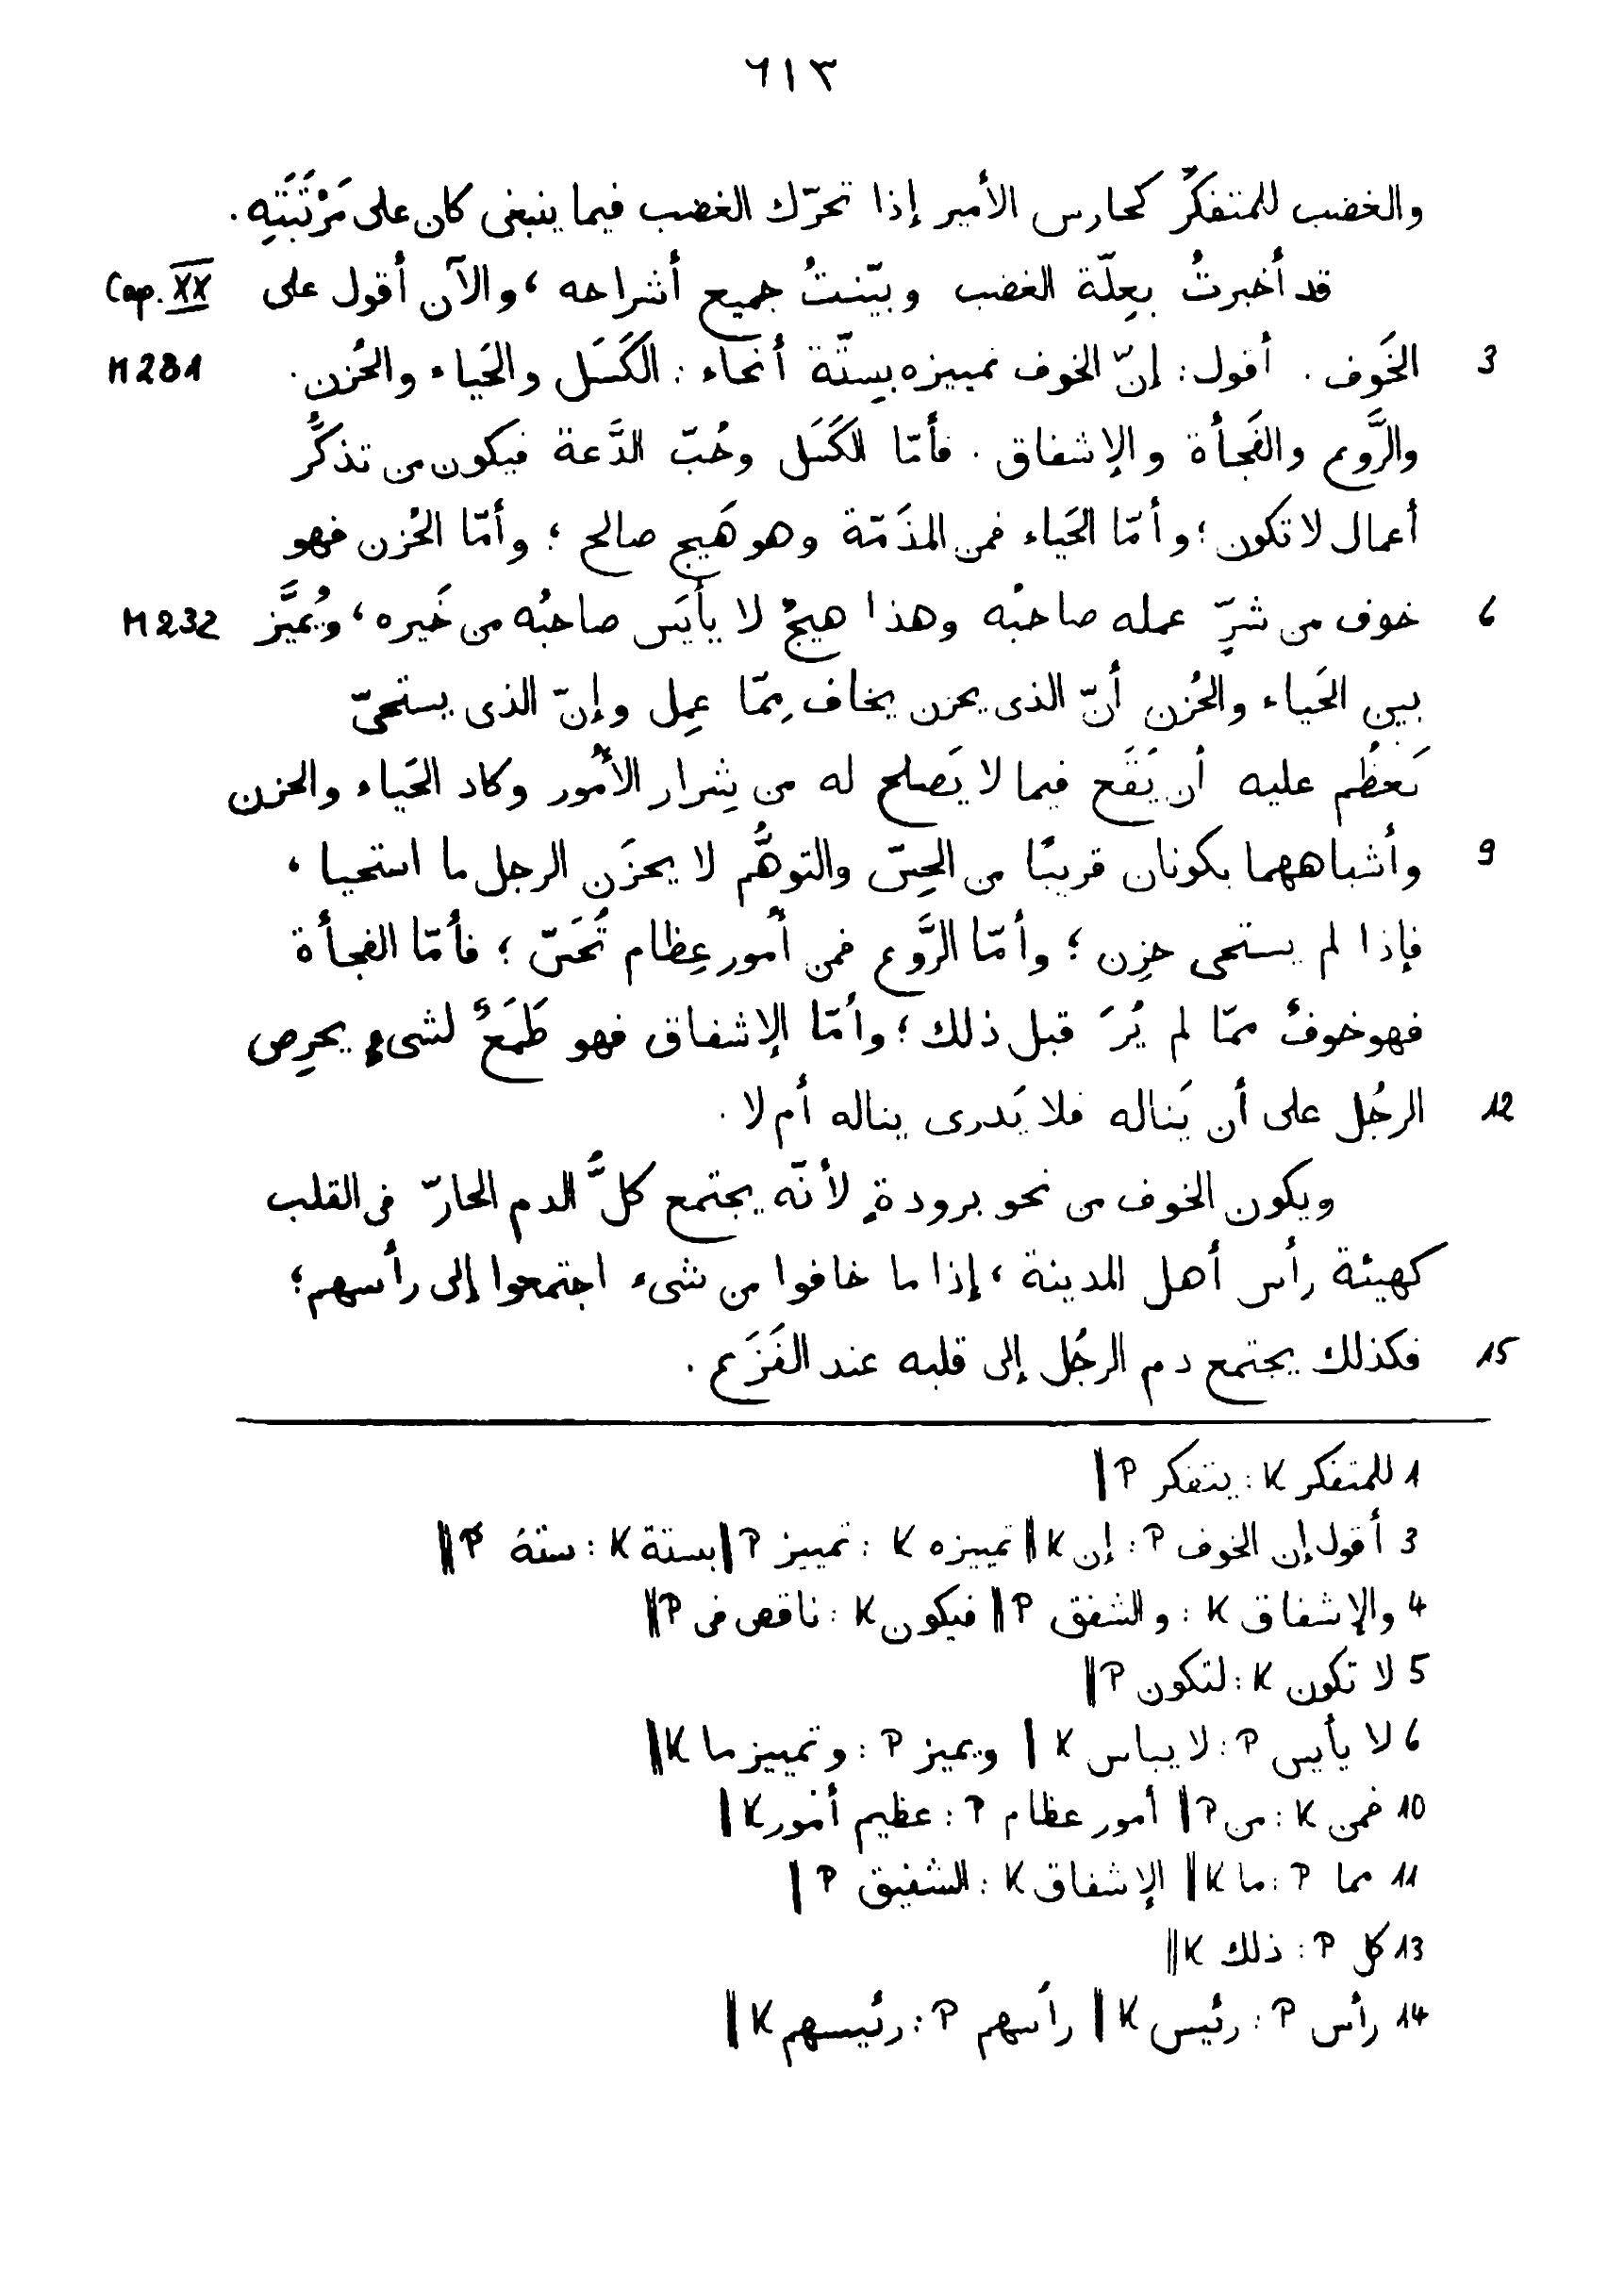 ٦١٣
والغضب للمتفكّر كحارس الأمير إذا تحرّك الغضب فيما ينبغى كان على مَرْتَبَتَهِ .
قد أخبرتُ بعِلّة الغضب وبيّنتُ جميع أشراحه ، والآن أقول على Cap. XX
3 الخَوف . أقول : إنّ الخوف تمييزه بسِتّة أنحاء : الكَسَل والحَياء والحُزن . M 231
والرَّوع والفَجأة والإشفاق . فأمّا الكَسَل وحُبّ الدَّعة فيكون من تذكُّر
أعمال لا تكون ؛ وأمّا الحَياء فمن المذَمّة وهو هَيج صالح ؛ وأمّا الحُزن فهو
6 خوف من شرّ عمله صاحبُه وهذا هيجٌ لا يأيَس صاحبُه من خَيره ، ويُميَّز M 232
بين الحَياء والحُزن أنّ الذى يحزن يخاف مِمّا عمِل وإنّ الذى يستحىّ
يَعظُم عليه أن يَقَع فيما لا يَصلح له من شِرار الأُمور وكاد الحَياء والحزن
9 وأشباههما يكونان قريبًا من الحِسّ والتوهُّم لا يحزَن الرجل ما استحيا ،
فإذا لم يستحى حزِن ؛ وأمّا الرَّوع فمن أُمور عِظام تُحَسّ ؛ فأمّا الفجأة
فهو خوفٌ ممّا لم يُرَ قبل ذلك ؛ وأمّا الإشفاق فهو طَمَعٌ لشىءٍ يحرِص
12 الرجُل على أن يَناله فلا يَدرى يناله أم لا .
ويكون الخوف من نحو برودةٍ لأنّه يجتمع كلُّ الدم الحارّ فى القلب
كهيئة رأس أهل المدينة ، إذا ما خافوا من شىء اجتمعوا إلى رأسهم ؛
15 فكذلك يجتمع دم الرجُل إلى قلبه عند الفَزَع .
1 للمتفكر K : يتفكر P |
3 أقول إن الخوف P : إن K || تمييزه K : تمييز P || بستة K : ستة P ||
4 والإشفاق K : والشفق P || فيكون K : ناقص فى P ||
5 لا تكون K : لتكون P ||
6 لا يأيس P : لا يباس K | ويميز P : وتمييز ما K ||
10 فمن K : من P || أمور عظام P : عظيم أمور K |
11 مما P : ما K || الإشفاق K : الشفيق P |
13 كل P : ذلك K ||
14 رأس P : رئيس K || رأسهم P : رئيسهم K ||